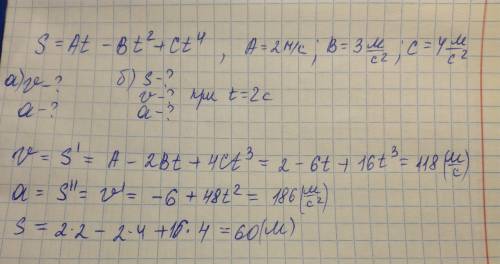 S = At - Bt² + Ct⁴ , A = 2 м/с ; B = 3 м/с² ; C = 4 м/с²
а) v - ? б) S - ?
a - ? v - ? при t = 2c
a - ?
v = S' = A - 2Bt + 4Ct³ = 2 - 6t + 16t³ = 118 (м/с)
a = S'' = v' = -6 + 48t² = 186 (м/с²)
S = 2·2 - 2·4 + 16·4 = 60 (м)